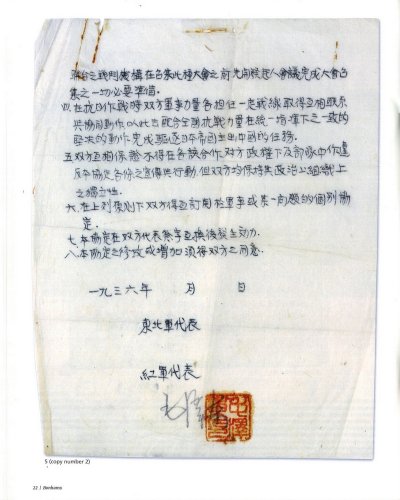 聯合之戰鬥機構在召集此種大會之前先開發起人會議完成大會召
集之一切必要準備.
四.在抗日作戰時双方軍事力量各担任一定戰線取得互相联系
共協同動作以此在配合全國抗戰力量在統一指揮下之一致的
堅決的動作完成驅逐日本帝國主義出中國的任務.
五.双方互相保證不得在各該合作对方政權下及部隊中作違
反本協定各份之宣傳與行動,但双方均保持其政治上組織上
之獨立性.
六.在上列原則下双方得互訂関於軍事或某一問題的個別協
定.
七.本協定在双方代表簽字互換後發生効力.
八.本協定之修改或增加須得双方之同意.
一九三六年 月 日
東北軍代表
紅軍代表
毛澤東
5 (copy number 2)
22 | Bonhams